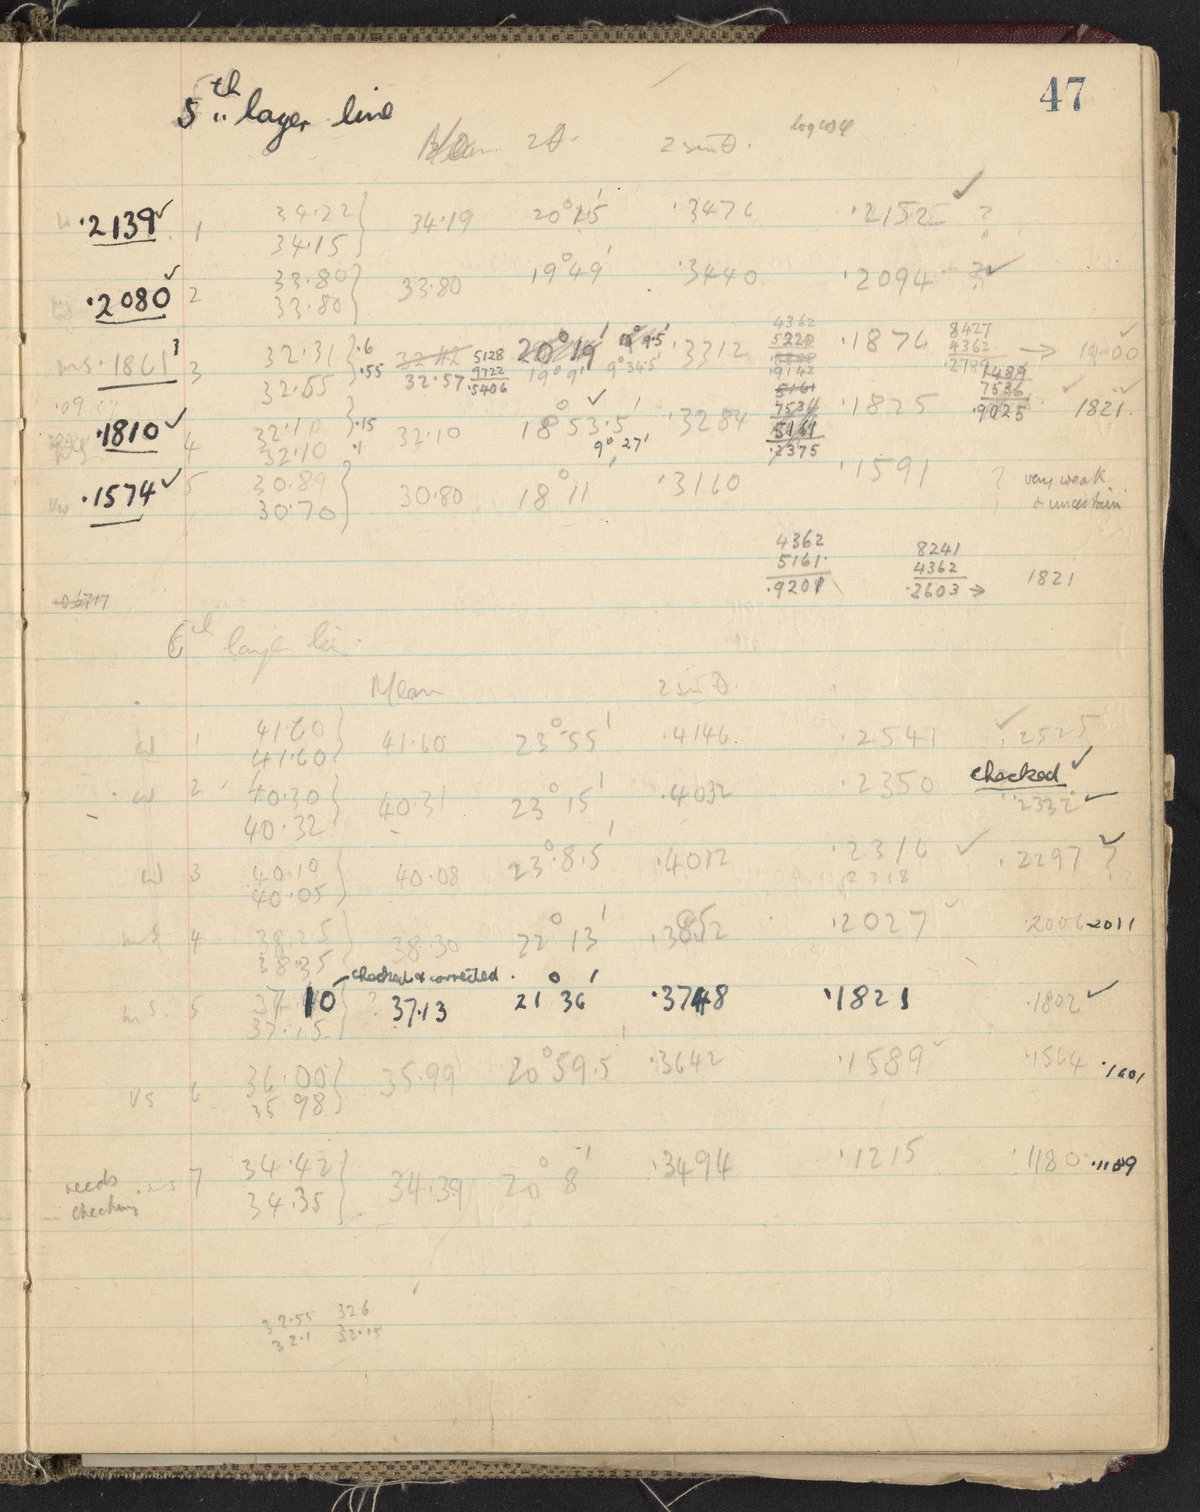 47
5th layer line
Mean 2θ 2 sin θ. log cos φ
w ·2139 ✓ 1 34·22 34·15 } 34·19 20° 15' ·3476 ·2152 ? ✓
·2080 ✓ 2 33·80 33·80 } 33·80 19° 49' ·3440 ·2094 ? ✓
ms ·1861 3 3 32·31 32·55 } ·6 ·55 32·57 5128 9722 ·5406 20° 19' 19° 9' 9° 34·5' ·3312 4362 5220 ·9142 ·1876 8427 4362 ·2789 → 1900 ✓
·1810 ✓ 4 32·10 32·10 } ·15 ·1 32·10 18° 53·5' ✓ 9° 27' ·3284 5161 7536 5161 ·2375 ·1825 1489 7536 ·9025 ✓ 1821. ✓
vw ·1574 ✓ 5 30·89 30·70 } 30·80 18° 11' ·3160 ·1591 ? very weak & uncertain
4362 8241
5161 4362
·9201 ·2603 → 1821
·06717
6th layer line
Mean 2 sin θ.
w 1 41·60 41·60 } 41·60 23° 55' ·4146 ·2541 ✓ ·2525
w 2 40·30 40·32 } 40·31 23° 15' ·4032 ·2350 checked ✓ ·2332 ✓
w 3 40·10 40·05 } 40·08 23° 8·5' ·4012 ·2316 ✓ 2318 ·2297 ✓ ?
ms 4 38·25 38·35 } 38·30 22° 13' ·3852 ·2027 ✓ ·2006 ·2011
checked & corrected
ms. 5 37·10 37·15 } ? 37·13 21° 36' ·3748 ·1821 ·1802 ✓
vs 6 36·00 35·98 } 35·99 20° 59·5' ·3642 ·1589 ✓ ·1564 ·1601
needs checking ms 7 34·42 34·35 } 34·39 20° 8' ·3494 ·1215 ·1180 ·1189
32·55 326
32·1 32·15